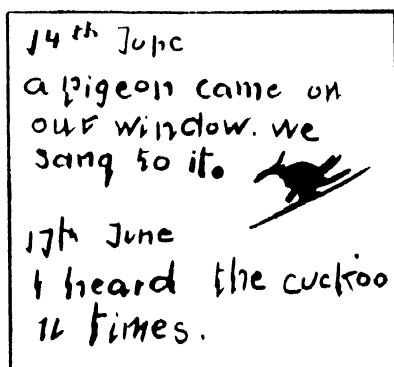 14th June
a pigeon came on
our window. we
sang to it.
17th June
I heard the cuckoo
times.